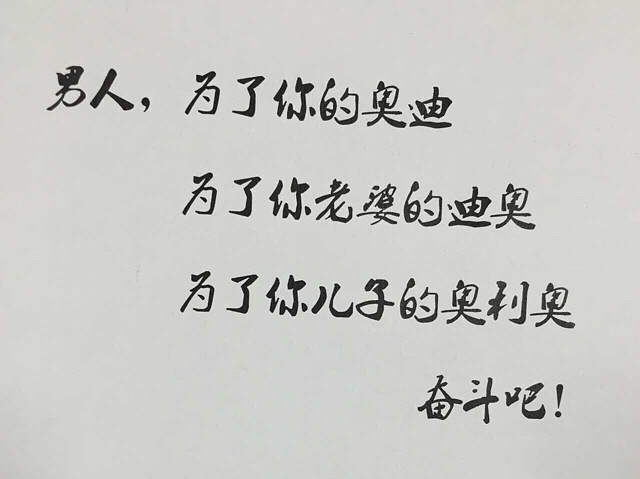 男人，为了你的奥迪
为了你老婆的迪奥
为了你儿子的奥利奥
奋斗吧！